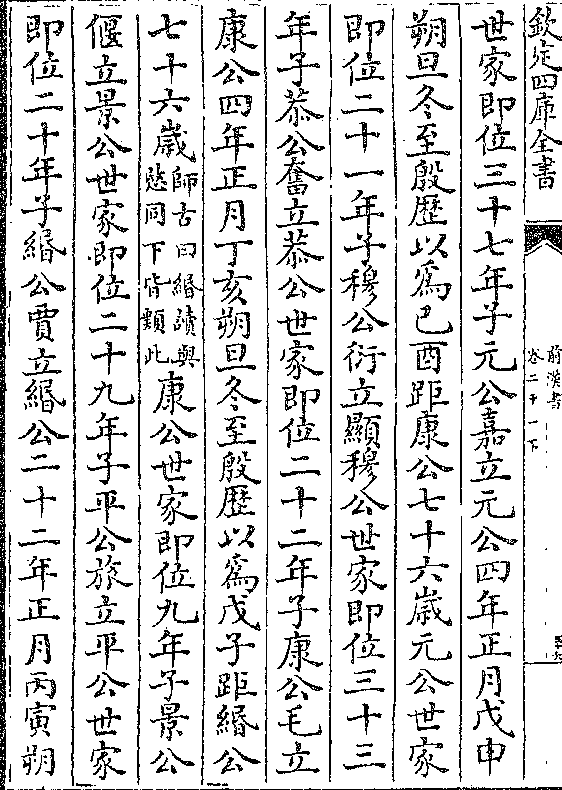 欽定四庫全書
前漢書
卷二十一下
世家即位三十七年子元公嘉立元公四年正月戊申
朔旦冬至殷歷以為己酉距康公七十六歲元公世家
即位二十一年子穆公衍立顯穆公世家即位三十三
年子恭公奮立恭公世家即位二十二年子康公毛立
康公四年正月丁亥朔旦冬至殷歷以為戊子距緡公
七十六歲師古曰緡讀與愍同下皆類此康公世家即位九年子景公
偃立景公世家即位二十九年子平公旅立平公世家
即位二十年子緡公賈立緡公二十二年正月丙寅朔